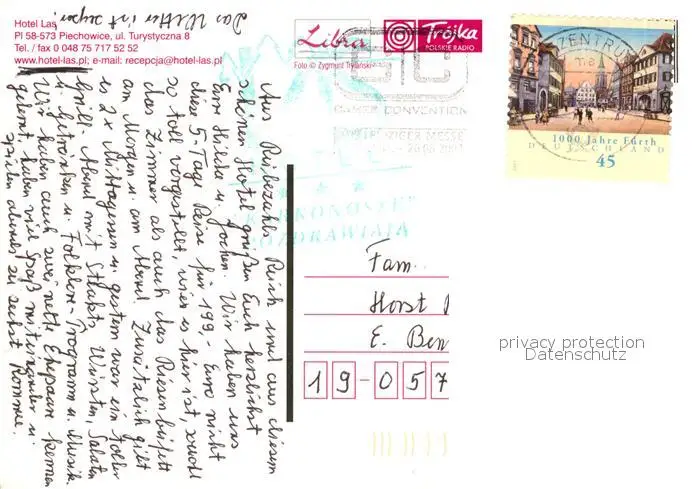 Das Wetter ist super!
Hotel Las
Pl 58-573 Piechowice, ul. Turystyczna 8
Tel. / fax 0 048 75 717 52 52
www.hotel-las.pl; e-mail: recepcja@hotel-las.pl
Libra
Trójka
POLSKIE RADIO
Foto © Zygmunt Trylański
Aus Rübezahls Reich und aus diesem
schönen Hotel grüßen Euch herzlichst
Eure Hilde u. Jochen. Wir haben uns
diese 5-Tage Reise für 199,- Euro nicht
so toll vorgestellt, wie es hier ist, sowohl
das Zimmer als auch das Riesenbüfett
am Morgen u. am Abend. Zusätzlich gibt
es 2x Mittagessen u. gestern war ein toller
Grill-Abend mit Steaks, Würsten, Salaten
u. Getränken u. Folklore-Programm u. Musik.
Wir haben auch zwei nette Ehepaare kennen
gelernt, haben viel Spaß miteinander u.
spielen abends zu sechst Rommee.
GC
GAMES CONVENTION
LEIPZIGER MESSE
ZENTRUM
KARKONOSZE
POZDRAWIAJĄ
1000 Jahre Fürth
DEUTSCHLAND
45
Fam.
Horst
E. Ben
19-057
privacy protection
Datenschutz